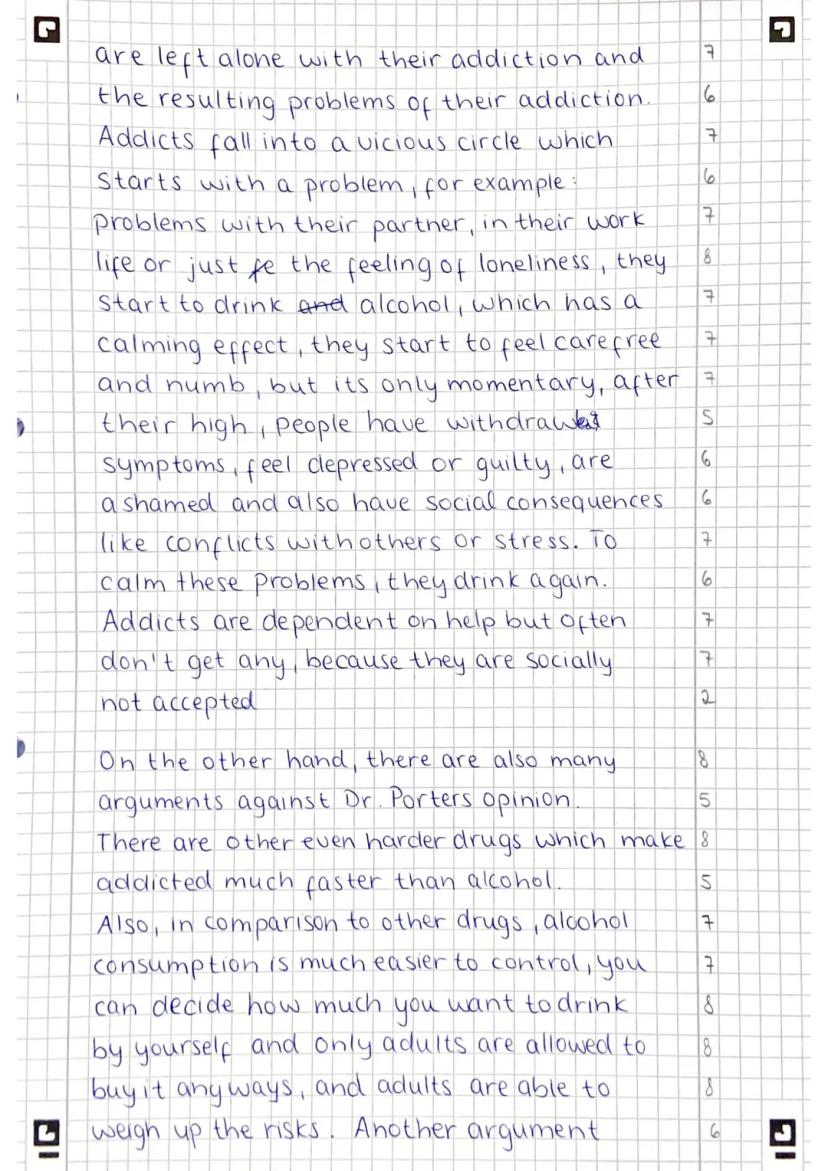 are left alone with their addiction and 7
the resulting problems of their addiction. 6
Addicts fall into a vicious circle which 7
starts with a problem, for example: 6
problems with their partner, in their work 7
life or just fe the feeling of loneliness, they 8
start to drink and alcohol, which has a 7
calming effect, they start to feel carefree 7
and numb, but its only momentary, after 7
their high, people have 5
symptoms, feel depressed or guilty, are 6
ashamed and also have social consequences 6
like conflicts with others or stress. To 7
calm these problems, they drink again. 6
Addicts are dependent on help but often 7
don't get any, because they are socially 7
not accepted 2
On the other hand, there are also many 8
arguments against Dr. Porters opinion. 5
There are other even harder drugs which make 8
addicted much faster than alcohol. 5
Also, in comparison to other drugs, alcohol 7
consumption is much easier to control, you 7
can decide how much you want to drink 8
by yourself and only adults are allowed to 8
buy it anyways, and adults are able to 8
weigh up the risks. Another argument 6